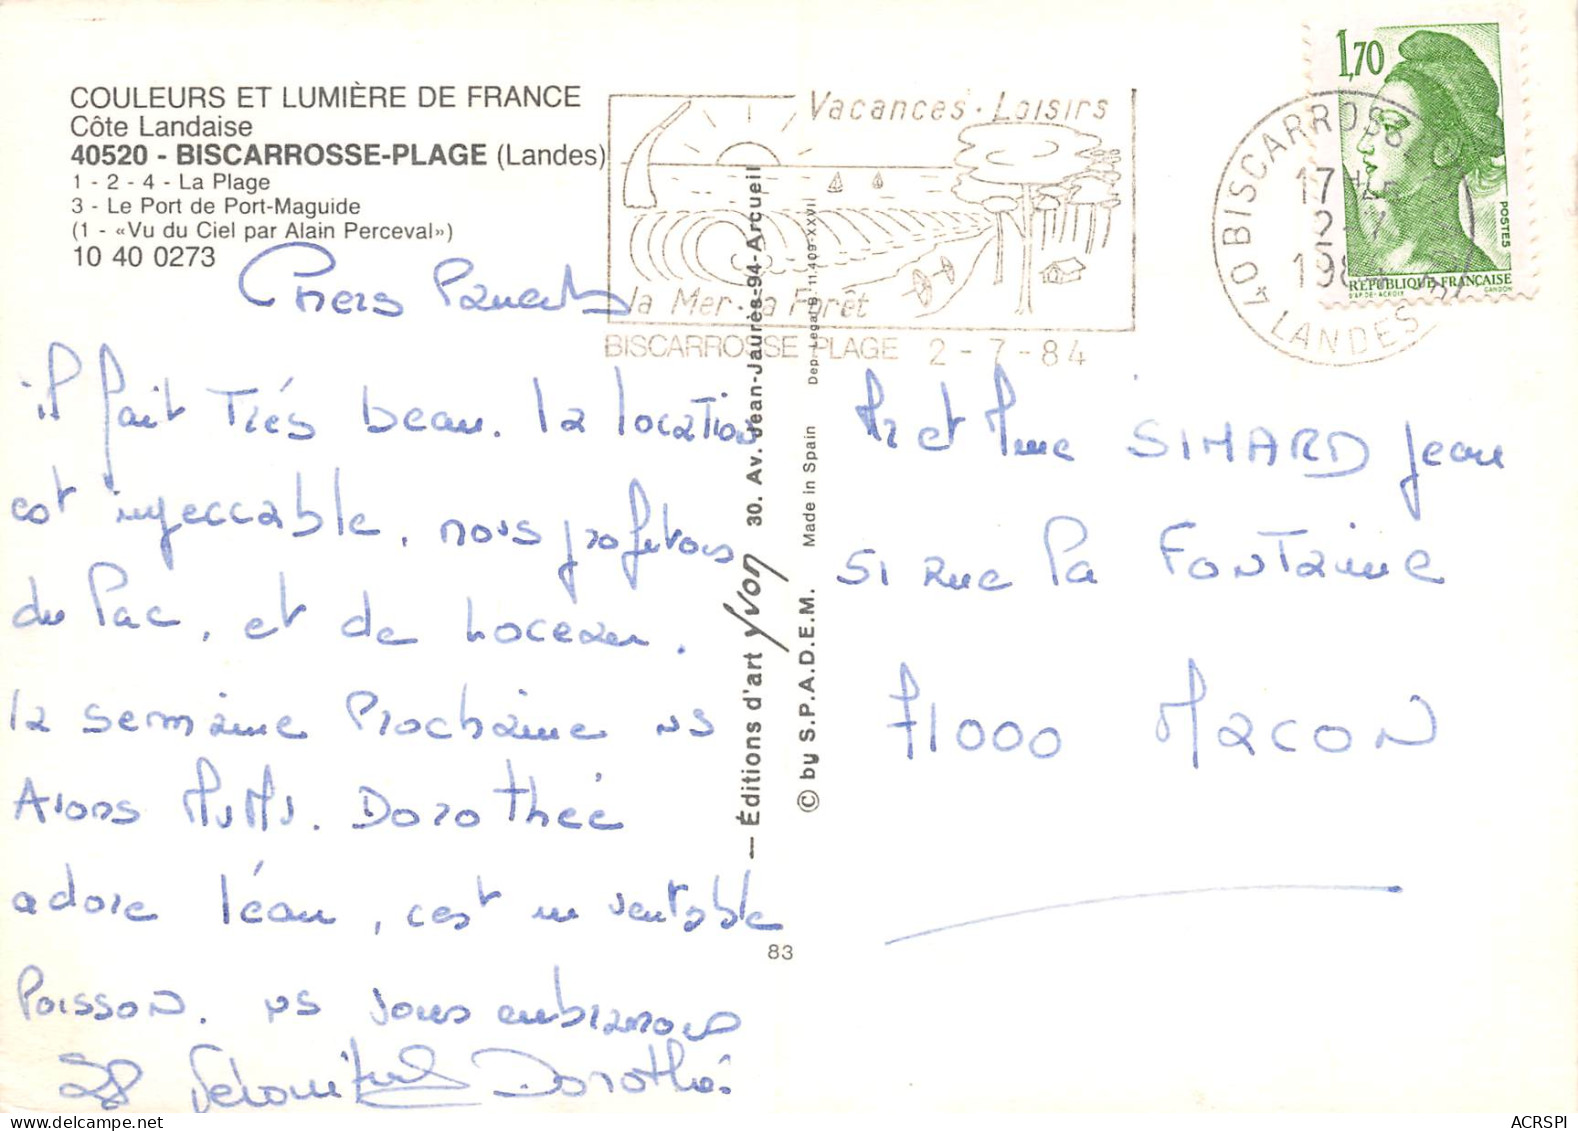 COULEURS ET LUMIÈRE DE FRANCE
Côte Landaise
40520 - BISCARROSSE-PLAGE (Landes)
1 - 2 - 4 - La Plage
3 - Le Port de Port-Maguide
(1 - «Vu du Ciel par Alain Perceval»)
10 40 0273
Vacances - Loisirs
la Mer - la Forêt
BISCARROSSE PLAGE 2 - 7 - 84
40 BISCARROSSE
17H
2-7
1984
LANDES
1,70
POSTES
RÉPUBLIQUE FRANÇAISE
D'AP. DE-ACROIX
GANDON
Chers Parents
il fait Trés beau. la location
est impeccable, nous profitons
du Lac, et de Locean.
la semaine Prochaine ns
Avons MiMi. Dorothée
adore léau, c'est un veritable
Poisson. ns vous embrassons
Dorothée
— Éditions d'art Yvon 30. Av. Jean-Jaurès-94-Arcueil
© by S.P.A.D.E.M. Made in Spain Dep. Legal B. 11.409-XXVI
83
Mr et Mme SIMARD Jean
51 rue La FONTaine
71000 MACON
ACRSPI